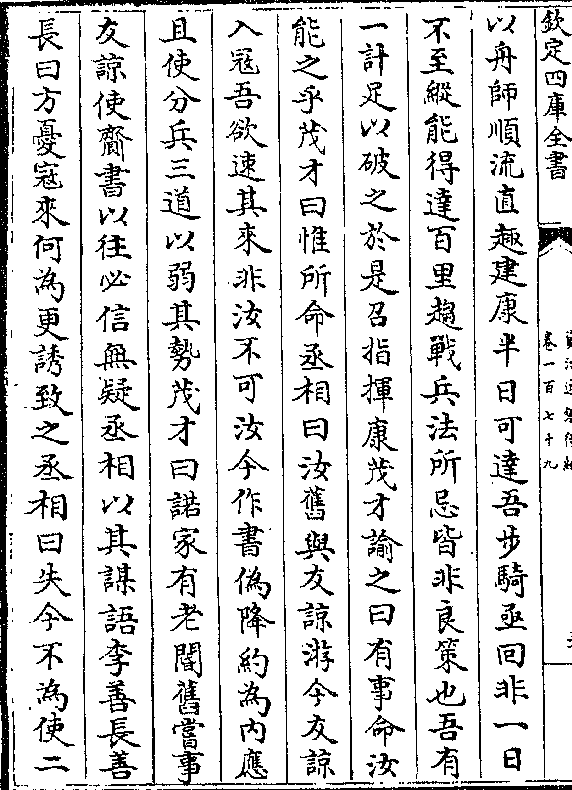 欽定四庫全書
卷一百七十九
以舟師順流直趣建康半日可達吾步騎亟回非一日
不至縱能得達百里趨戰兵法所忌皆非良策也吾有
一計足以破之於是召指揮康茂才諭之曰有事命汝
能之乎茂才曰惟所命丞相曰汝舊與友諒游今友諒
入冦吾欲速其來非汝不可汝今作書偽降約為內應
且使分兵三道以弱其勢茂才曰諾家有老閽舊嘗事
友諒使齎書以往必信無疑丞相以其謀語李善長善
長曰方憂寇來何為更誘致之丞相曰失今不為使二